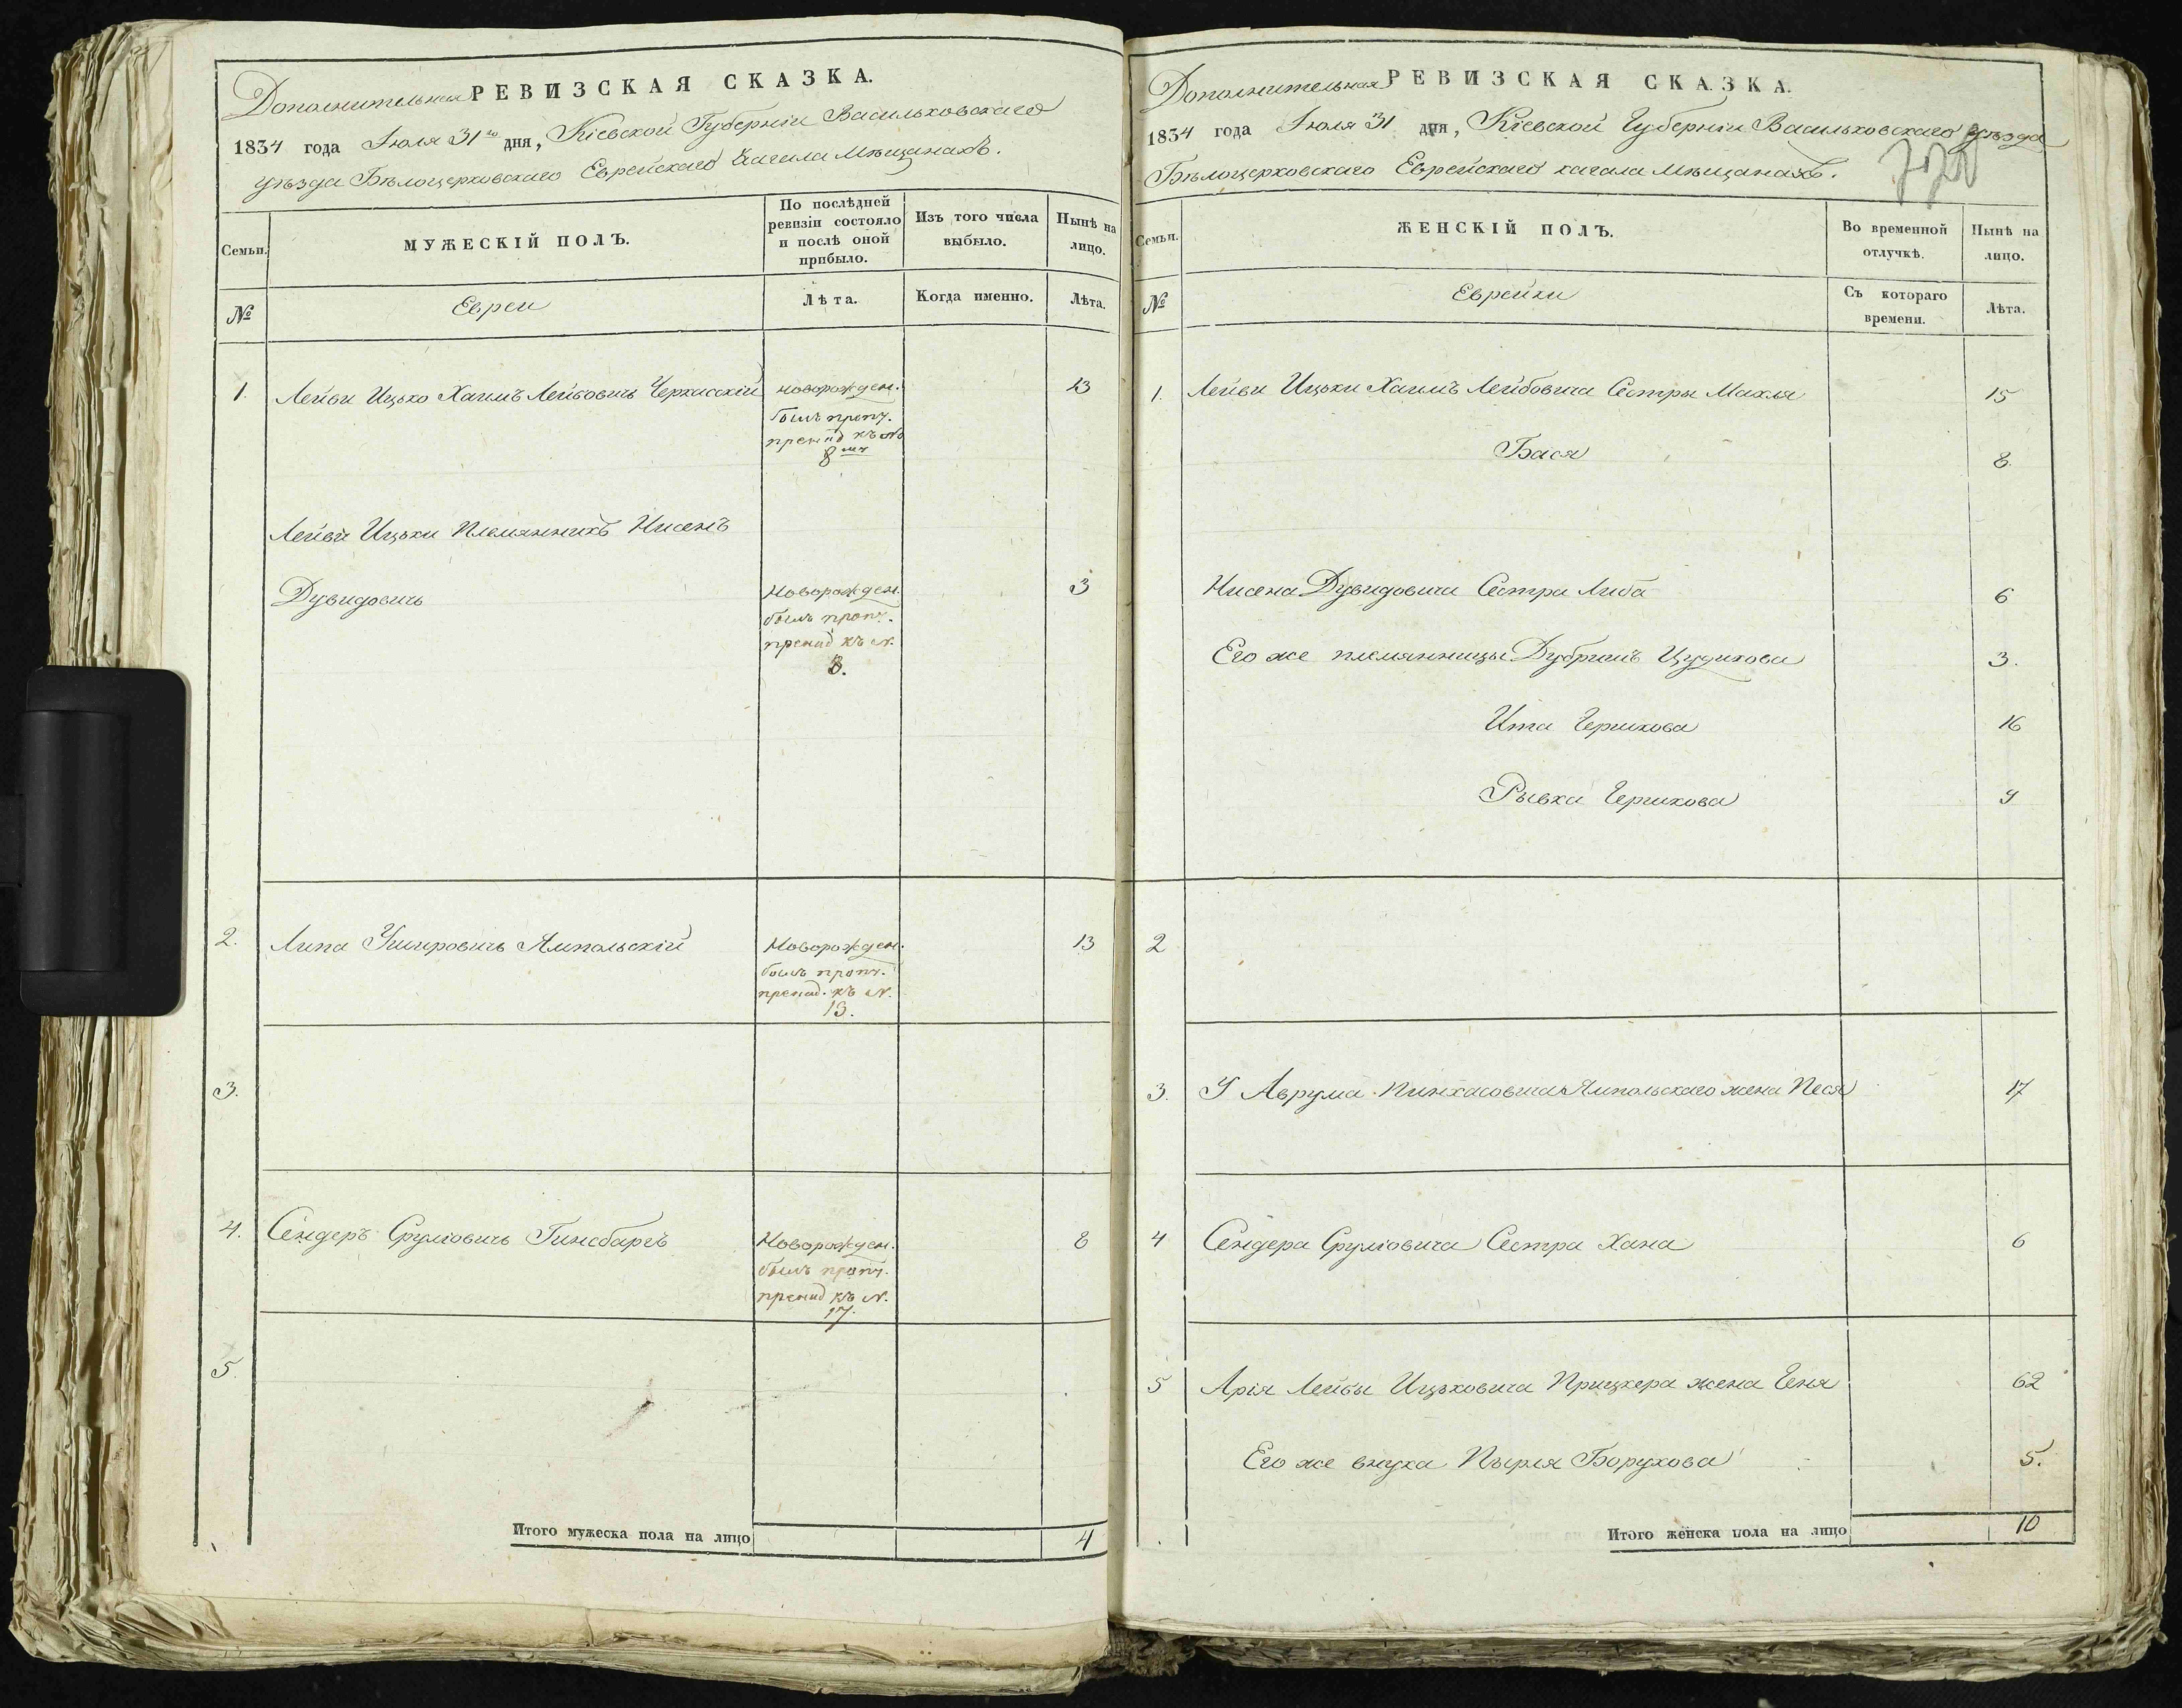 Дополнительная РЕВИЗСКАЯ СКАЗКА.
1834 года Іюля 31го дня, Кіевской Губерніи Васильковскаго
уѣзда Бѣлоцерковскаго Еврейскаго кагала Мѣщанахъ.
Семьи.
МУЖЕСКІЙ ПОЛЪ.
По послѣдней
ревизіи состояло
и послѣ оной
прибыло.
Изъ того числа
выбыло.
Нынѣ на
лицо.
№
Евреи
Лѣта.
Когда именно.
Лѣта.
1. Лейви Ицько Хаимъ Лейбовичь Черкасскій новорожден. 13
былъ проп.
къ №
8
Лейви Ицьки Племянникъ Нисенъ
Дувидовичь Новорожден. 3
былъ проп.
къ N.
8.
2. Липа Ушировичь Ямпольскій Новорожден. 13
былъ проп.
къ N.
13.
3.
4. Сендеръ Сруліовичь Гинсбаргъ Новорожден. 8
былъ проп.
къ N.
17.
5.
Итого мужеска пола на лицо 4
Дополнительная РЕВИЗСКАЯ СКАЗКА.
1834 года Іюля 31 дня, Кіевской Губерніи Васильковскаго уѣзда
Бѣлоцерковскаго Еврейскаго кагала Мѣщанахъ.
Семьи.
ЖЕНСКІЙ ПОЛЪ.
Во временной
отлучкѣ.
Нынѣ на
лицо.
№
Еврейки
Съ котораго
времени.
Лѣта.
1. Лейви Ицьки Хаимъ Лейбовича Сестры Махля 15
Бася 8.
Нисена Дувидовича Сестра Либа 6
Его же племянницы Дубримъ Цудикова 3.
Ита Гершкова 16
Рывка Гершкова 9
2
3. У Аврума Пинхасовича Ямпольскаго жена Песя 17
4 Сендера Сруліовича Сестра Хана 6
5 Арія Лейбы Ицьковича Прицкера жена Геня 62
Его же внука Пырля Борухова 5.
Итого женска пола на лицо 10